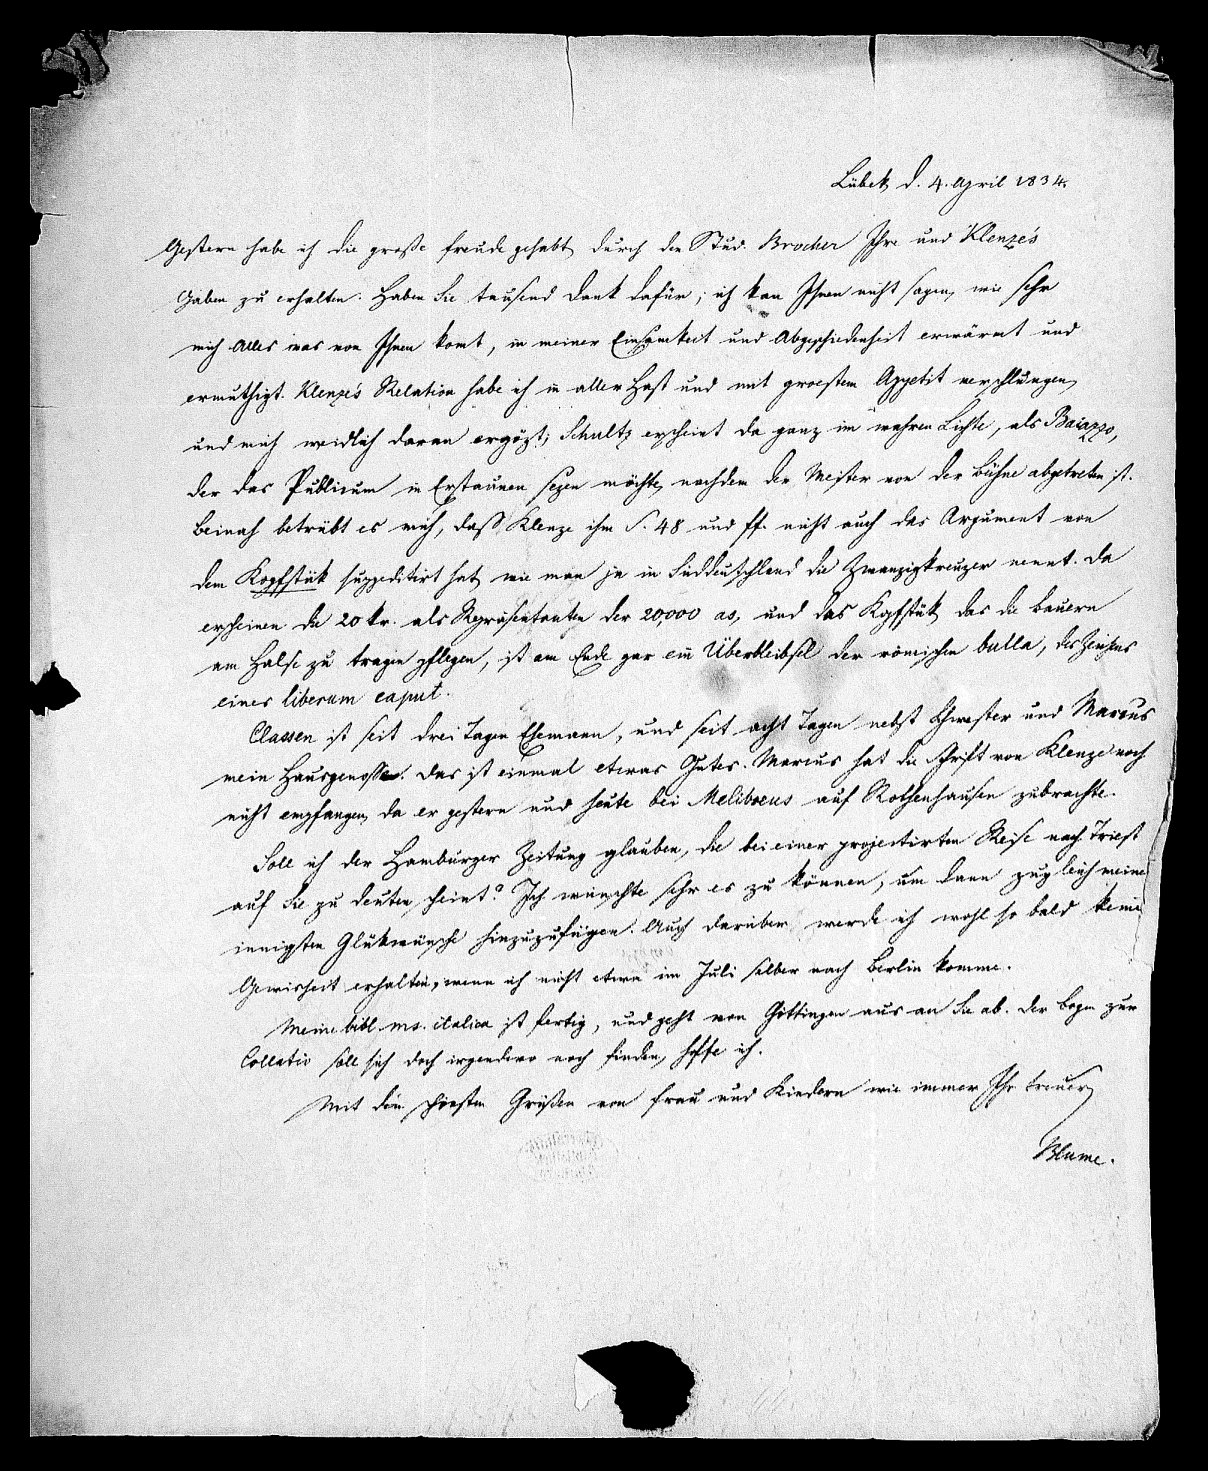 Lübek d. 4. April 1834.
Gestern habe ich die große Freude gehabt, durch den Stud. Brocher Ihre und Klenze's
Gaben zu erhalten. Haben Sie tausend Dank dafür; ich kan Ihnen nicht sagen, wie sehr
mich Alles was von Ihnen komt, in meiner Einsamkeit und Abgeschiedenheit erwärmt und
ermuthigt. Klenze's Relation habe ich in aller Hast und mit groestem Appetit verschlungen,
und mich weidlich daran ergözt; Schultz erscheint da ganz im wahren Lichte, als Baiazzo,
der das Publicum in Erstaunen sezen möchte, nachdem der Meister von der Bühne abgetreten ist.
Beinah betrübt es mich, daß Klenze ihm S. 48 und ff. nicht auch das Argument von
dem Kopfstük suppeditirt hat, wie man ja in Süddeutschland die Zwanzigkreuzer nennt. Da
erscheinen die 20 kr. als Repräsentanten der 20,000 as, und das Kopfstük, das die Bauern
am Halse zu tragen pflegen, ist am Ende gar ein Überbleibsel der römischen bulla, des Zeichens
eines liberum caput.
Classen ist seit drei Tagen Ehemann, und seit acht Tagen nebst Schwester und Marcus
mein Hausgenosse. Das ist einmal etwas Gutes. Marcus hat die Schrift von Klenze noch
nicht empfangen, da er gestern und heute bei Meliboeus auf Rothenhausen zubrachte.
Soll ich der Hamburger Zeitung glauben, die bei einer projectirten Reise nach Triest
auf Sie zu deuten scheint? Ich wünschte sehr es zu können, um dann zugleich meine
innigsten Glükwünsche hinzuzufügen. Auch darüber werde ich wohl so bald keine
Gewisheit erhalten, wenn ich nicht etwa im Juli selber nach Berlin komme.
Meine bibl. ms. italica ist fertig, und geht von Göttingen aus an Sie ab. Der Bogen zur
Collatio soll sich doch irgendwo noch finden, hoffe ich.
Mit den schönsten Grüßen von Frau und Kindern wie immer Ihr treuer
Blume.